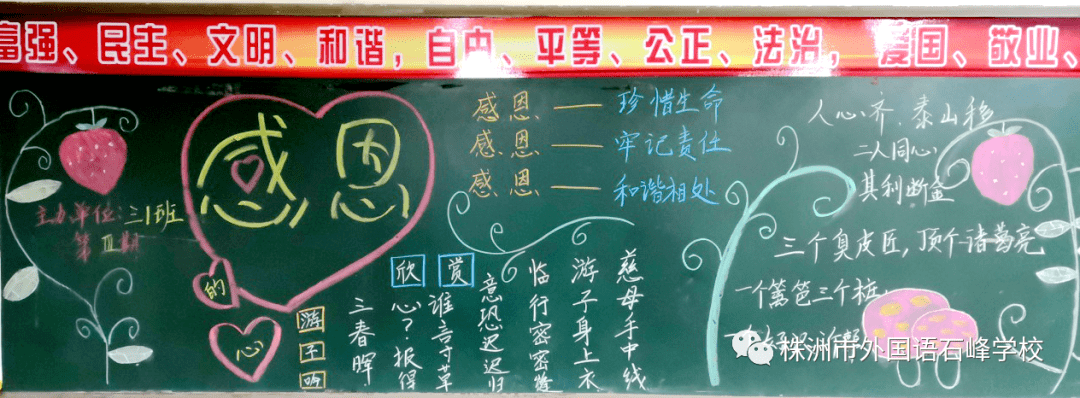 富强、民主、文明、和谐，自由、平等、公正、法治，爱国、敬业、
感恩
的
心
主办单位:三1班
第Ⅲ期
感恩——珍惜生命
感恩——牢记责任
感恩——和谐相处
欣赏
游子吟
慈母手中线
游子身上衣
临行密密缝
意恐迟迟归
谁言寸草
心?报得
三春晖
人心齐.泰山移
二人同心
其利断金
三个臭皮匠,顶个诸葛亮
一个篱笆三个桩
株洲市外国语石峰学校